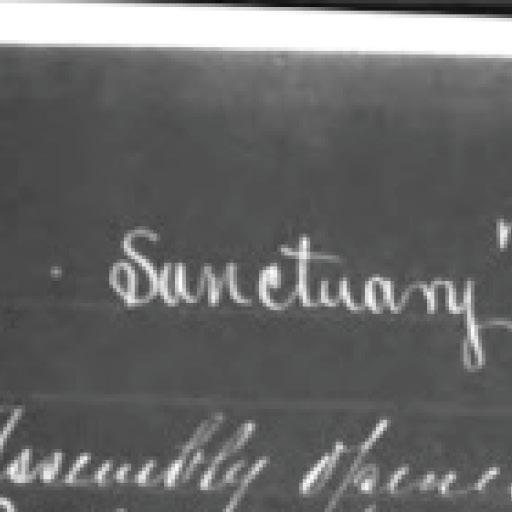 Sanctuary
Assembly opene